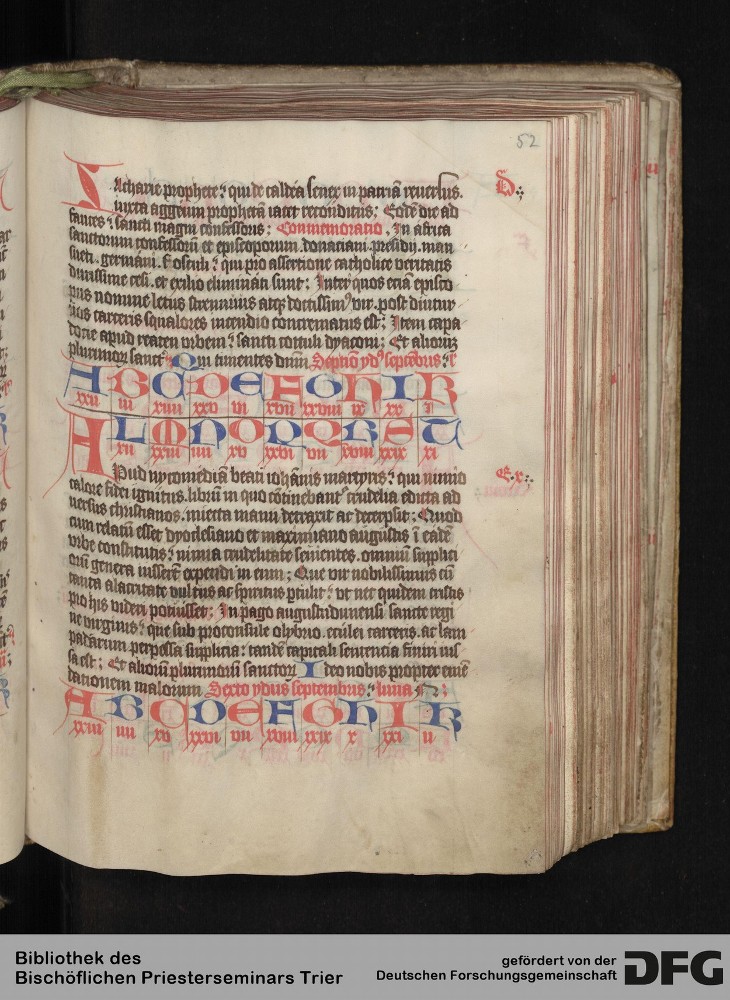 52
Zacharie prophete : qui de caldea senex in patriā reuersus. D
iuxta aggeum prophetā iacet reconditus : Eodē die ad
fances : sancti magni confessoris : Commemoratio . In africa
sanctorum confessorū et episcoporum. donaciani. presidij. man
sueti. germani. fosculi : qui pro assertione catholice veritatis
durissime cesi. et exilio eliminati sunt : Inter quos eciā episco
pus nomine letus strennuus atq doctissim9 vir. post diutur
nos carceris squalores incendio concrematus est : Item capa
docie apud
vrbem : sancti cottuli dyaconi : Et alioru
plurimor sanct Qui timentes dnm Septīo yd9 septēbris : l
A B C D E F G H I K
xxij iij xiiij xxv vi xvij xxviij ix xx i
A L M N O P Q R S T
xij xxiij iiij xv xxvi vij xviij xxix xi
Apud nycomediā beati iohānis martyris : qui nimio E
calore fidei ignitus. librū in quo cōtinebant crudelia edicta ad
uersus christianos. iniecta manu detraxit ac decerpsit : Quod
cum relatū esset dyocleciano et maximiano augustis i eadē
vrbe constitutis : nimia crudelitate seuientes. omniū supplici
orū genera iusserūt expendi in eum : Que vir nobilissimus cū
tanta alacritate vultus ac spiritus ptulit : vt nec quidem tristis
pro his videri potuisset : In pago augustidunensi sancte regi
ne virginis : que sub proconsule olybrio. eculei carceris. ac lam
padarum perpessa supplicia : tandē capitali sentencia finiri ius
sa est : Et aliorū plurimorū sanctor Ideo nobis propter emē
dationem malorum Sexto ydus septembris : luna
A B C D E F G H I K
xxiij iiij xv xxvi vij xviij xxix x xxi ij
Bibliothek des
Bischöflichen Priesterseminars Trier
gefördert von der
Deutschen Forschungsgemeinschaft DFG